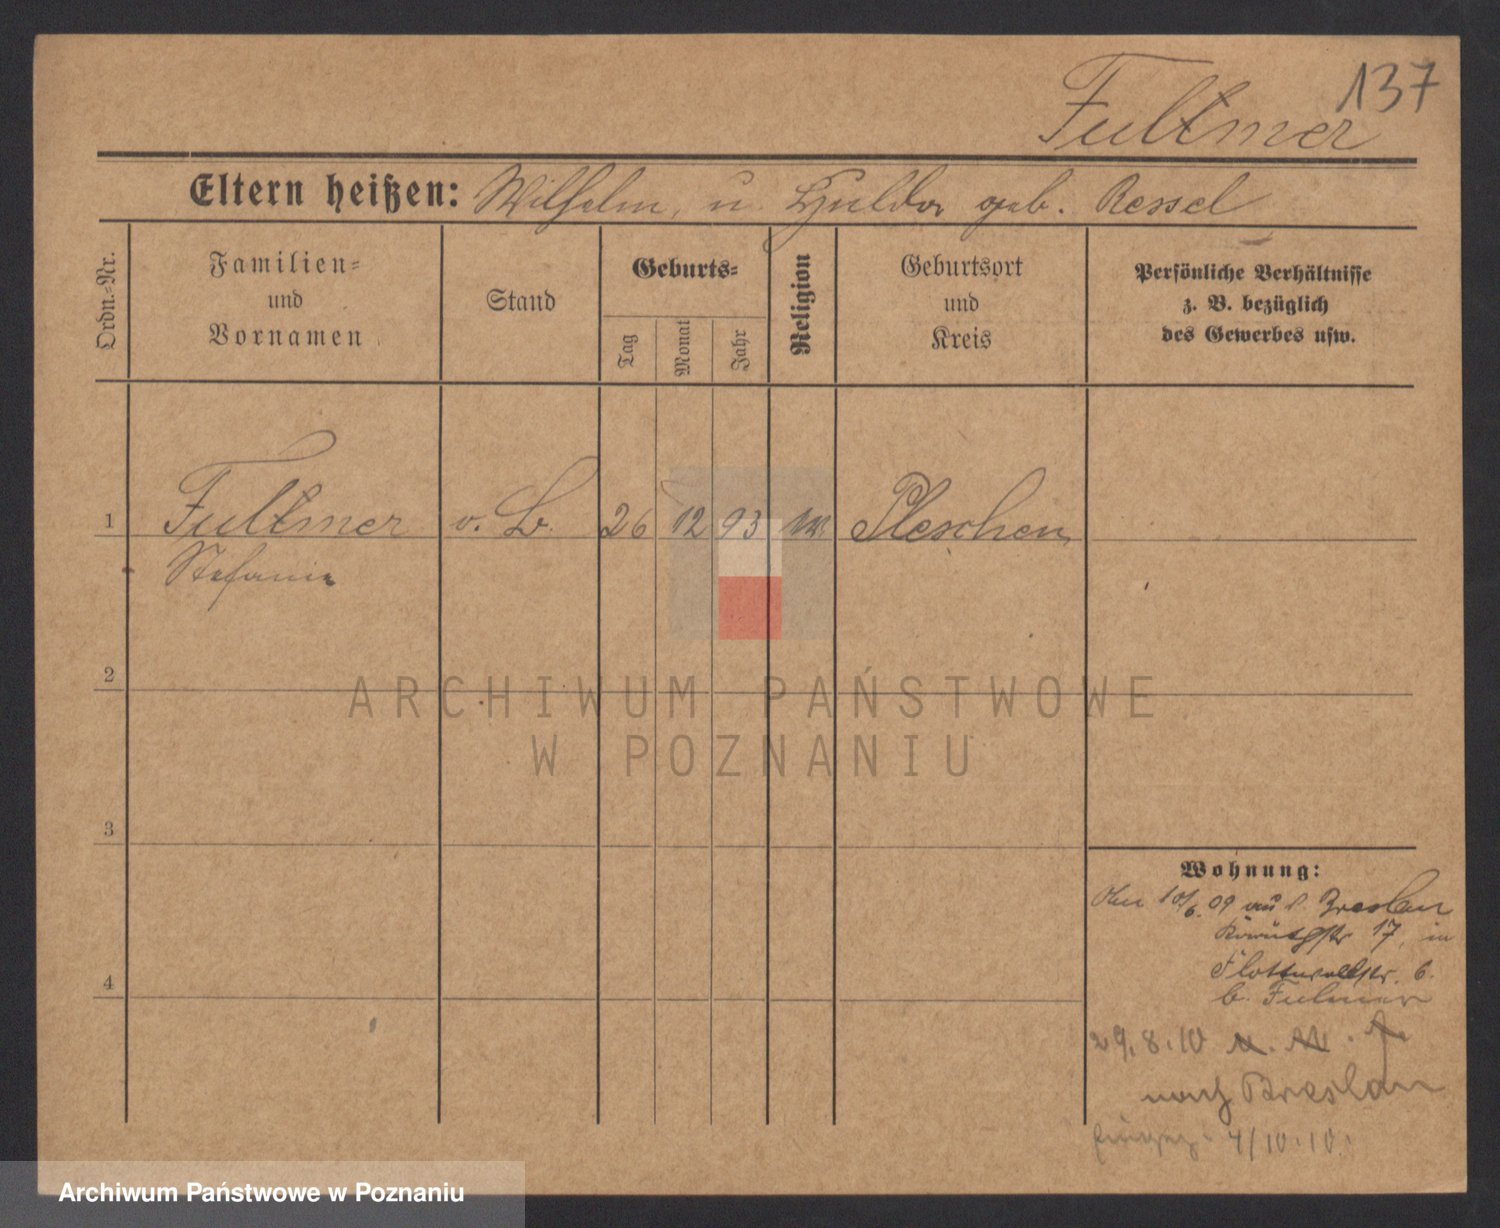 137
Fullmer
Eltern heißen: Wilhelm u. Hulda geb. Ressel
Ordn.-Nr.
Familien-
und
Vornamen
Stand
Geburts-
Tag
Monat
Jahr
Religion
Geburtsort
und
Kreis
Persönliche Verhältnisse
z. B. bezüglich
des Gewerbes usw.
1 Fullmer o. B. 26 12 93 Pleschen
Stefanie
2
ARCHIWUM PAŃSTWOWE
W POZNANIU
3
4
Wohnung:
10/6. 09 Breslau
17, in
Flottwellstr. 6.
b. Fulmer
29.8.10
nach Breslau
4/10.10.
Archiwum Państwowe w Poznaniu